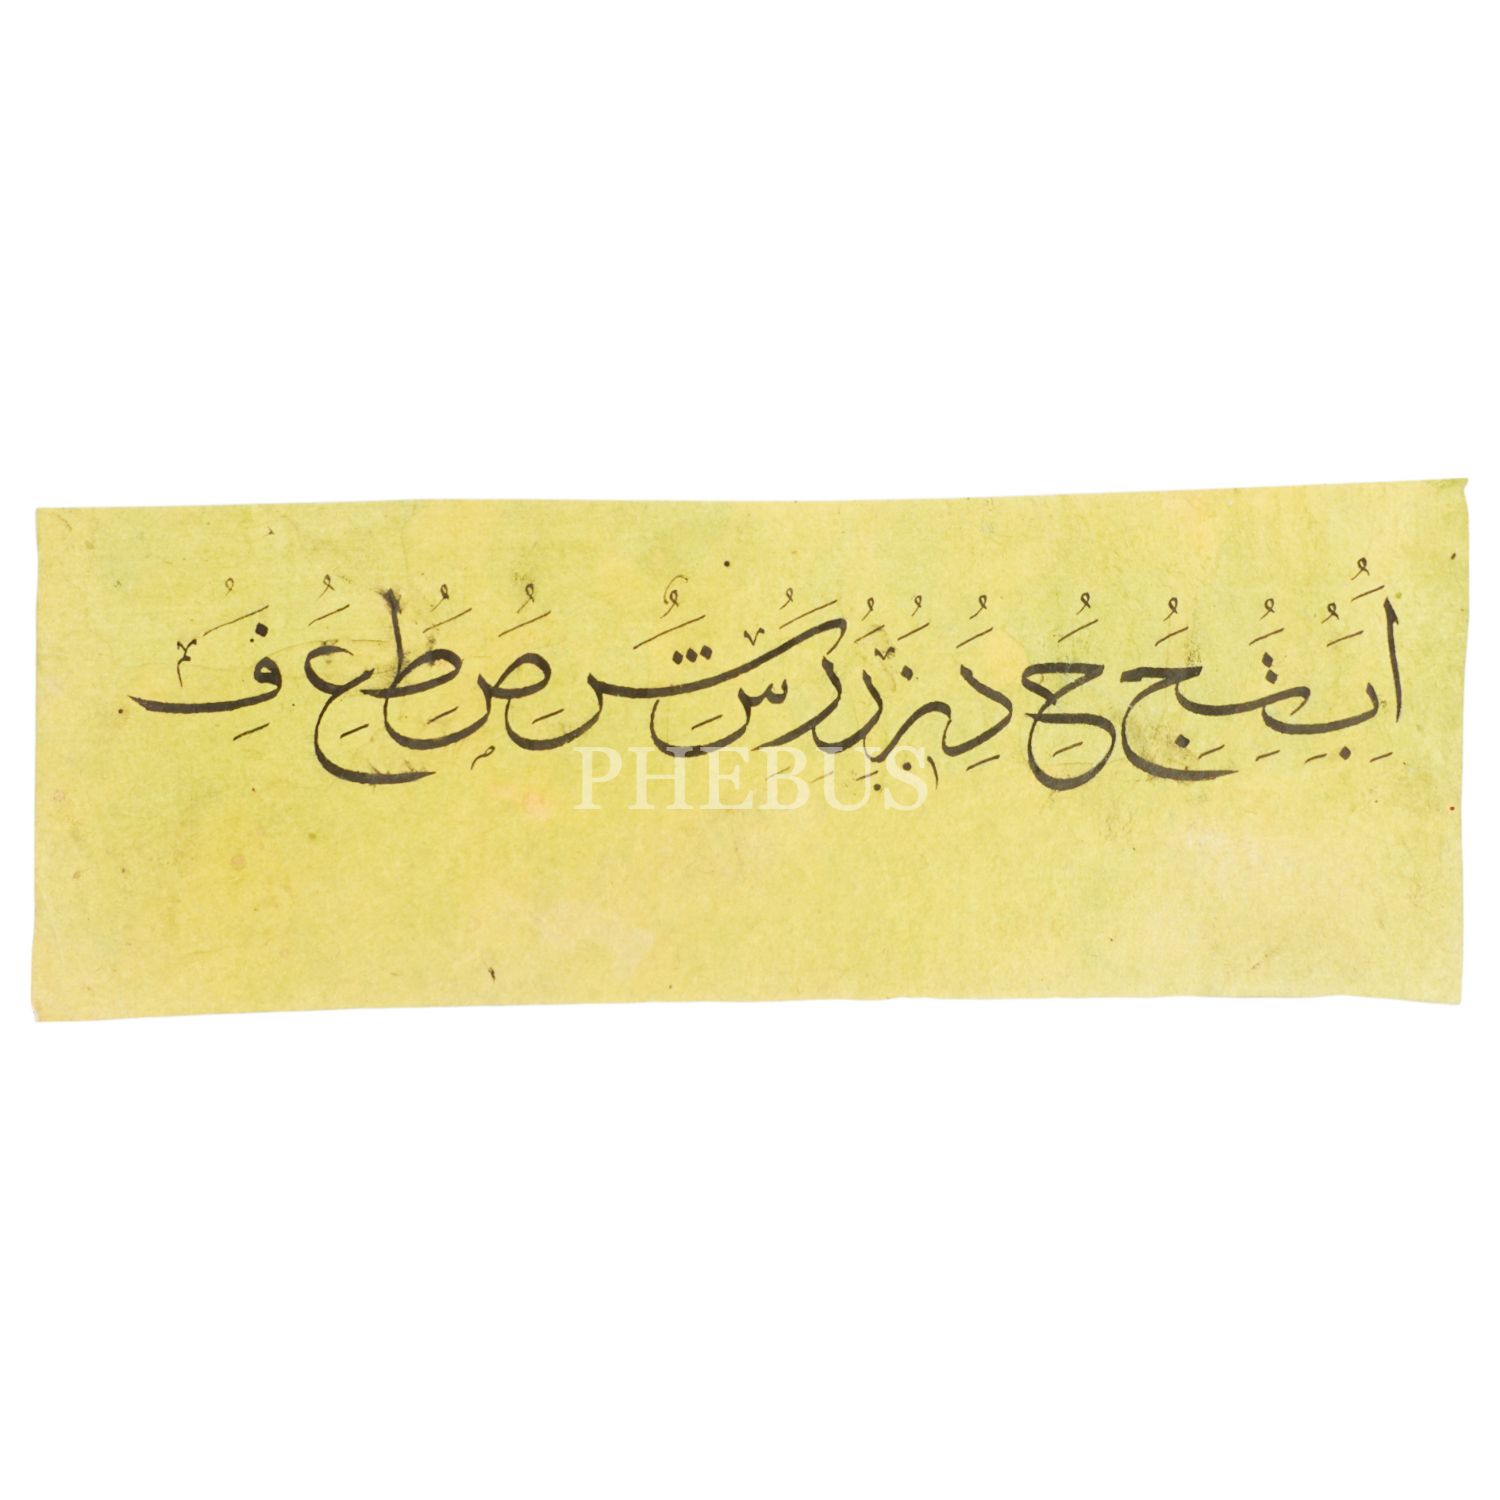 أَبُِتَُِجَُِ حَُِ دَُِ رَُِزَُِرَُِسَُِشَُِ صَُِ طَُِ عَُِ فَُِ
PHEBUS